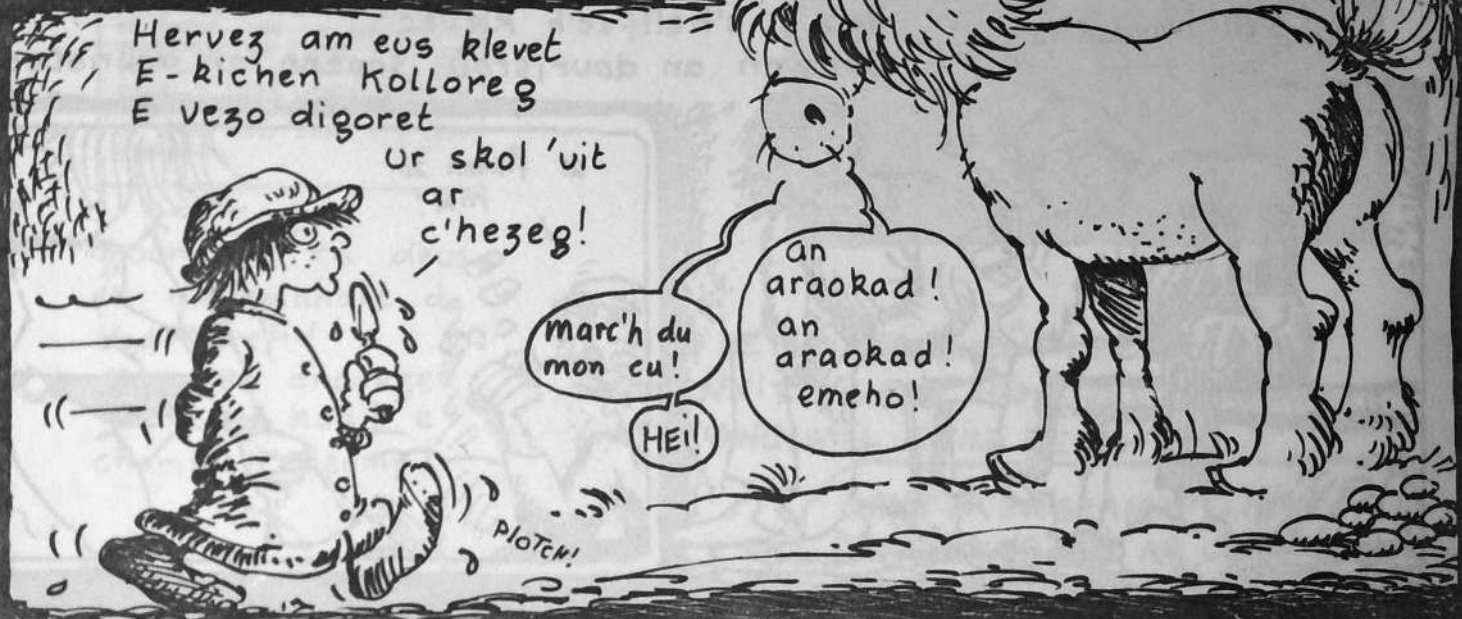 Hervez am eus klevet
E-kichen Kolloreg
E vezo digoret
ur skol 'vit
ar
c'hezeg!
marc'h du
mon cu!
HEI!
an
araokad!
an
araokad!
emeho!
PLOTCH!